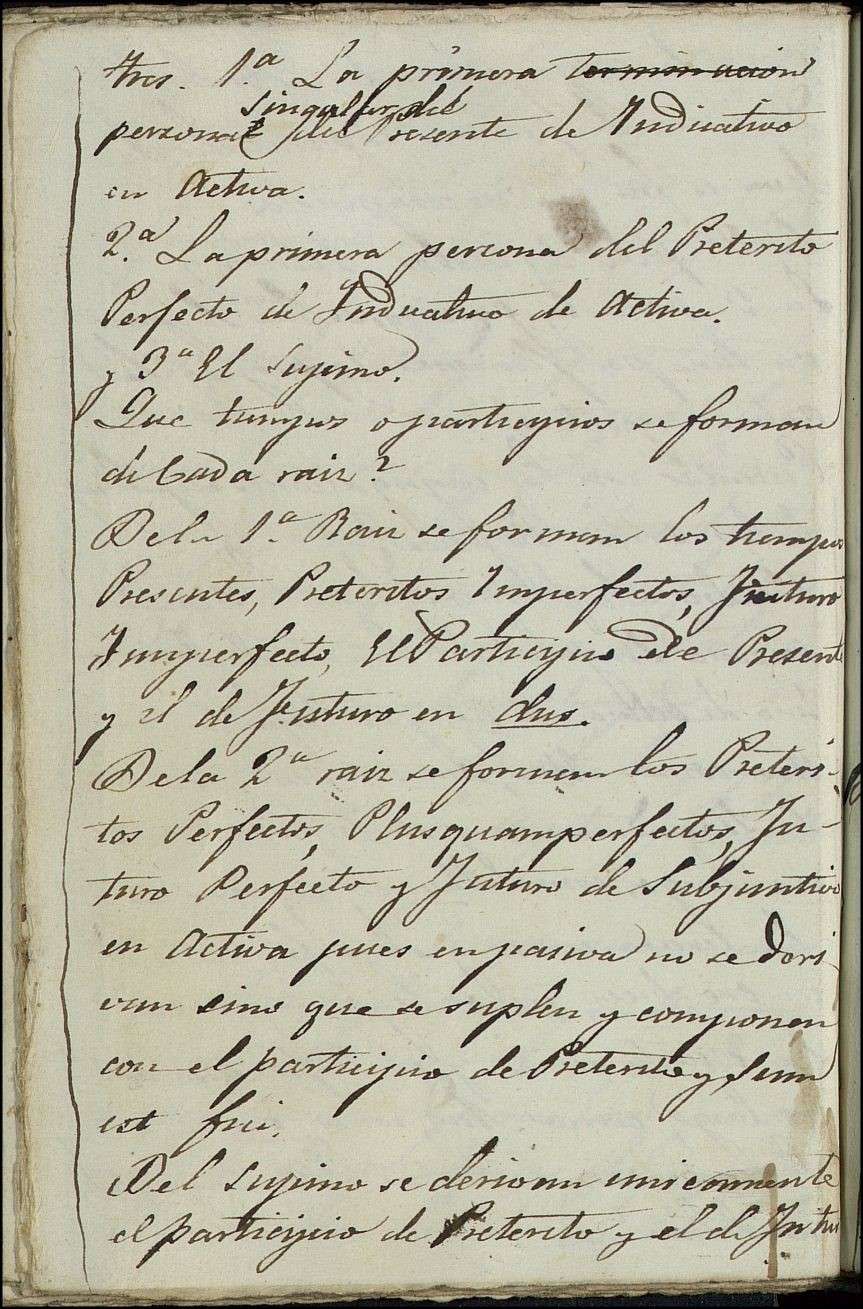 tres. 1.ª La primera terminacion
singular del
persona del Presente de Indicativo
en Activa.
2.ª La primera persona del Preterito
Perfecto de Indicativo de Activa.
y 3ª El Supino.
Que tiempos o participios se forman
de Cada raiz?
De la 1.ª Raiz se forman los tiempos
Presentes, Preteritos Imperfectos, Futuro
Imperfecto, El Participio de Presente
y el de Futuro en dus.
De la 2ª raiz se forman los Preteri-
tos Perfectos, Plusquamperfectos, Fu-
turo Perfecto y Futuro de Subjuntivo
en Activa pues en pasiva no se deri
van sino que se suplen y componen
con el participio de Preterito y Sum
est fui.
Del Supino se derivan unicamente
el participio de Preterito y el de Futu